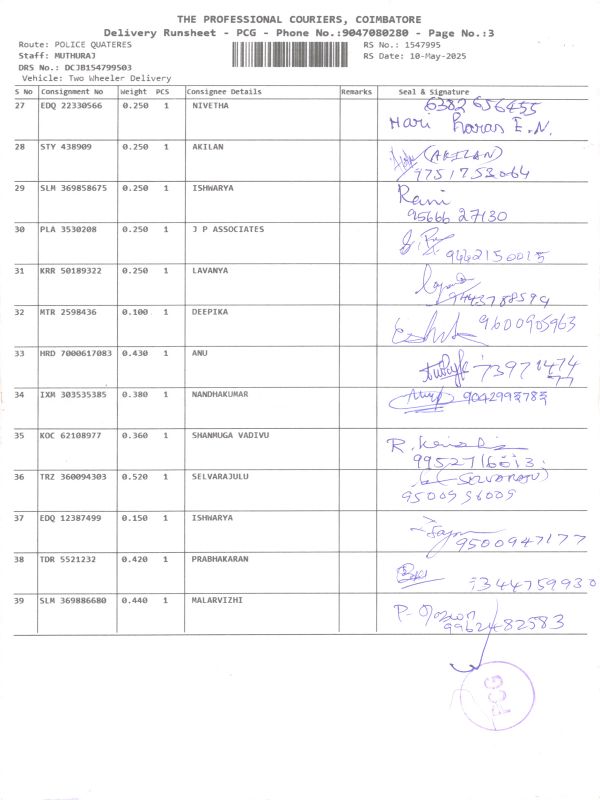 THE PROFESSIONAL COURIERS, COIMBATORE
Delivery Runsheet - PCG - Phone No.:9047080280 - Page No.:3
Route: POLICE QUATERES RS No.: 1547995
Staff: MUTHURAJ RS Date: 10-May-2025
DRS No.: DCJB154799503
Vehicle: Two Wheeler Delivery
S No Consignment No Weight PCS Consignee Details Remarks Seal & Signature
27 EDQ 22330566 0.250 1 NIVETHA 6382 656455
Hari Haran E.N.
28 STY 438909 0.250 1 AKILAN (AKILAN)
9751753064
29 SLM 369858675 0.250 1 ISHWARYA Rani
95666 27130
30 PLA 3530208 0.250 1 J P ASSOCIATES 9442150015
31 KRR 50189322 0.250 1 LAVANYA
9443788594
32 MTR 2598436 0.100 1 DEEPIKA 9600905963
33 HRD 7000617083 0.430 1 ANU
34 IXM 303535385 0.380 1 NANDHAKUMAR
35 KOC 62108977 0.360 1 SHANMUGA VADIVU R.
9952716013
36 TRZ 360094303 0.520 1 SELVARAJULU
9500936009
37 EDQ 12387499 0.150 1 ISHWARYA
9500947177
38 TDR 5521232 0.420 1 PRABHAKARAN
39 SLM 369886680 0.440 1 MALARVIZHI P.
9962482583
PCG